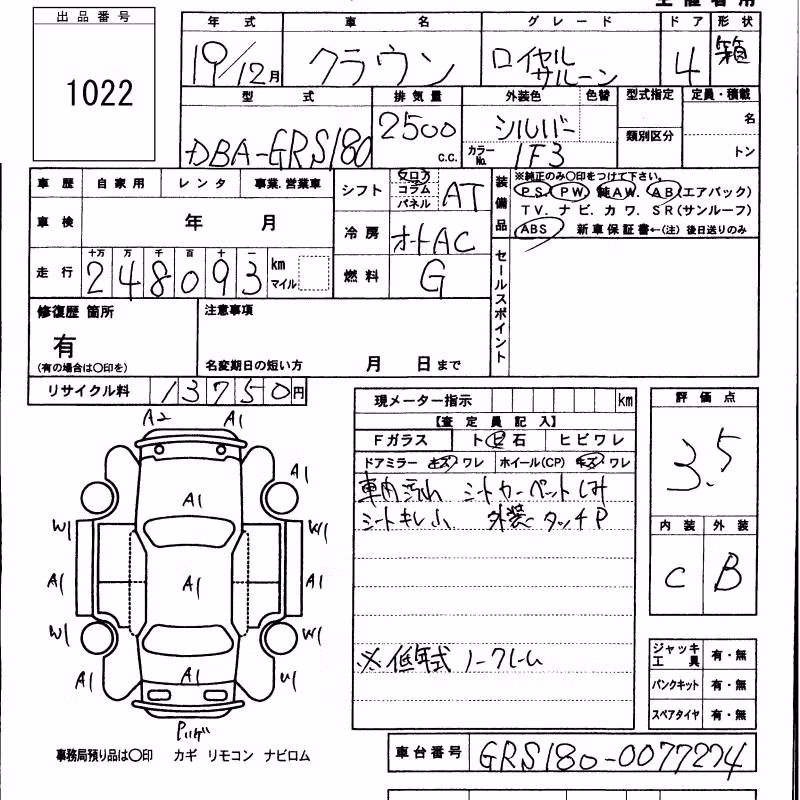 出品番号
1022
年式 車名 グレード ドア 形状
19/12月 クラウン ロイヤルサルーン 4 箱
型式 排気量 外装色 色替 型式指定 定員・積載
DBA-GRS180 2500 c.c. シルバー 類別区分 名
カラーNo. 1F3 トン
車歴 自家用 レンタ 事業.営業車 シフト フロア コラム パネル AT
装備品 ※純正のみ〇印をつけて下さい。
PS. PW. 純AW. AB(エアバック)
TV. ナビ. カワ. SR(サンルーフ)
ABS 新車保証書←(注) 後日送りのみ
車検 年 月 冷房 オートAC
走行 十万 万 千 百 十 一
248093 km マイル 燃料 G
セールスポイント
修復歴 箇所 注意事項
有
(有の場合は〇印を) 名変期日の短い方 月 日まで
リサイクル料 13750円
現メーター指示 km
【査定員記入】
Fガラス トビ石 ヒビワレ
ドアミラー キズ ワレ ホイール(CP) キズ ワレ
車内汚れ シートカーペットしみ
シートキレ小 外装タッチP
※低年式ノークレーム
評価点
3.5
内装 外装
C B
ジャッキ工具 有・無
パンクキット 有・無
スペアタイヤ 有・無
A2 A1
A1 A1
W1 W1
A1 A1 A1
W1 W1
A1 A1 U1
事務局預り品は〇印 カギ リモコン ナビロム
車台番号 GRS180-0077274